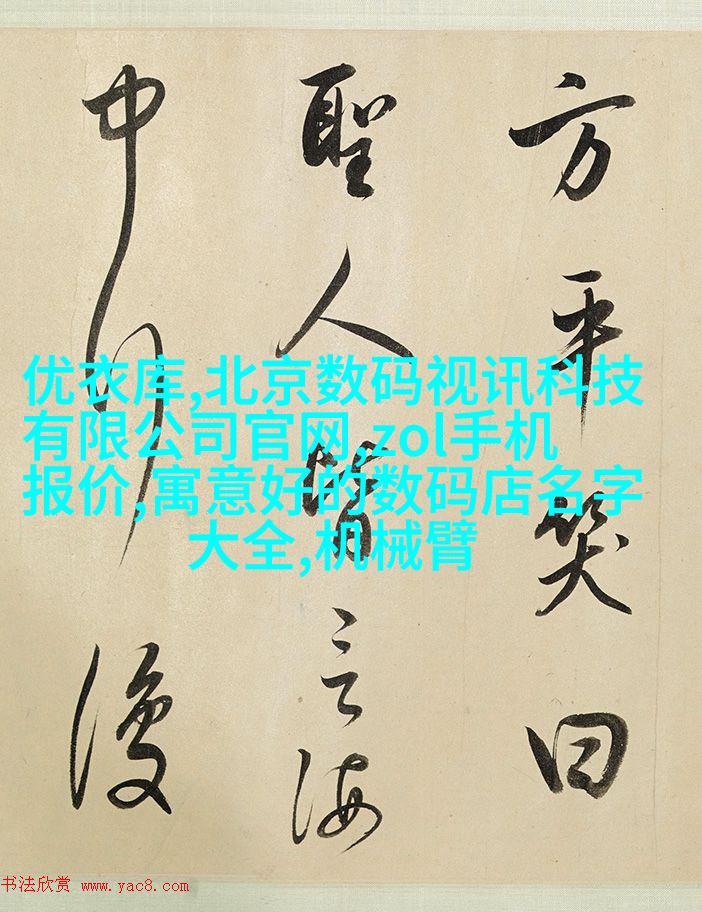 方平笑曰
聖人皆言海
中行復
优衣库,北京数码视讯科技
有限公司官网,zol手机
报价,寓意好的数码店名字
大全,机械臂
书法欣赏 www.yac8.com